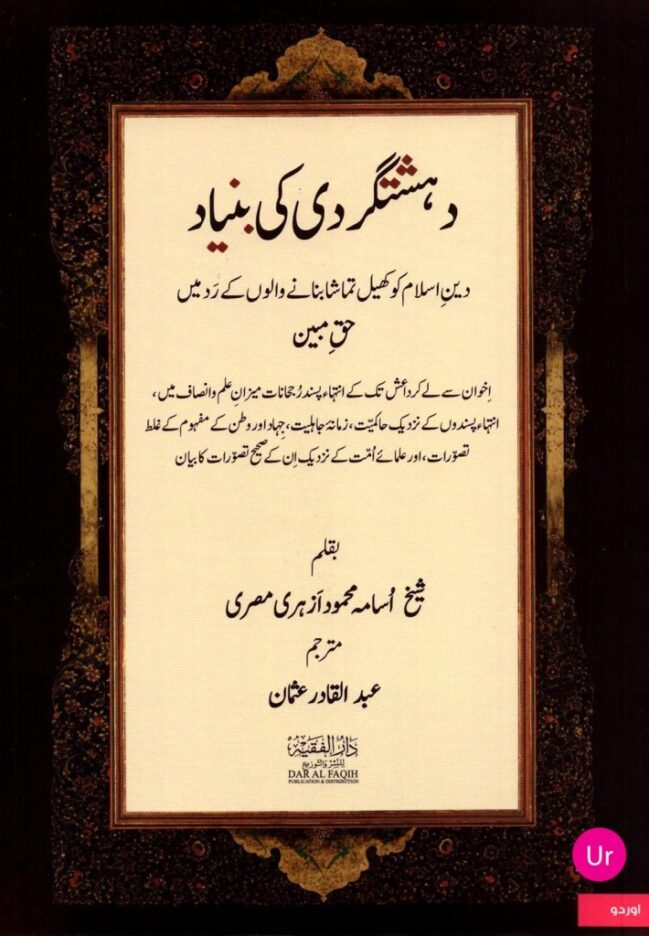 دہشتگردی کی بنیاد
دینِ اسلام کو کھیل تماشا بنانے والوں کے رَد میں
حقِ مبین
اِخوان سے لے کر داعش تک کے انتہاء پسند رُجحانات میزانِ علم و انصاف میں،
انتہاء پسندوں کے نزدیک حاکمیّت، زمانۂ جاہلیت، جِہاد اور وطن کے مفہوم کے غلط
تصوّرات، اور علمائے اُمّت کے نزدیک اِن کے صحیح تصوّرات کا بیان
بقلم
شیخ اُسامہ محمود اَزہری مصری
مترجم
عبد القادر عثمان
دَارُ الفَقِيه
لِلنَّشْرِ وَالتَّوْزِيع
DAR AL FAQIH
PUBLICATION & DISTRIBUTION
Ur
اوردو